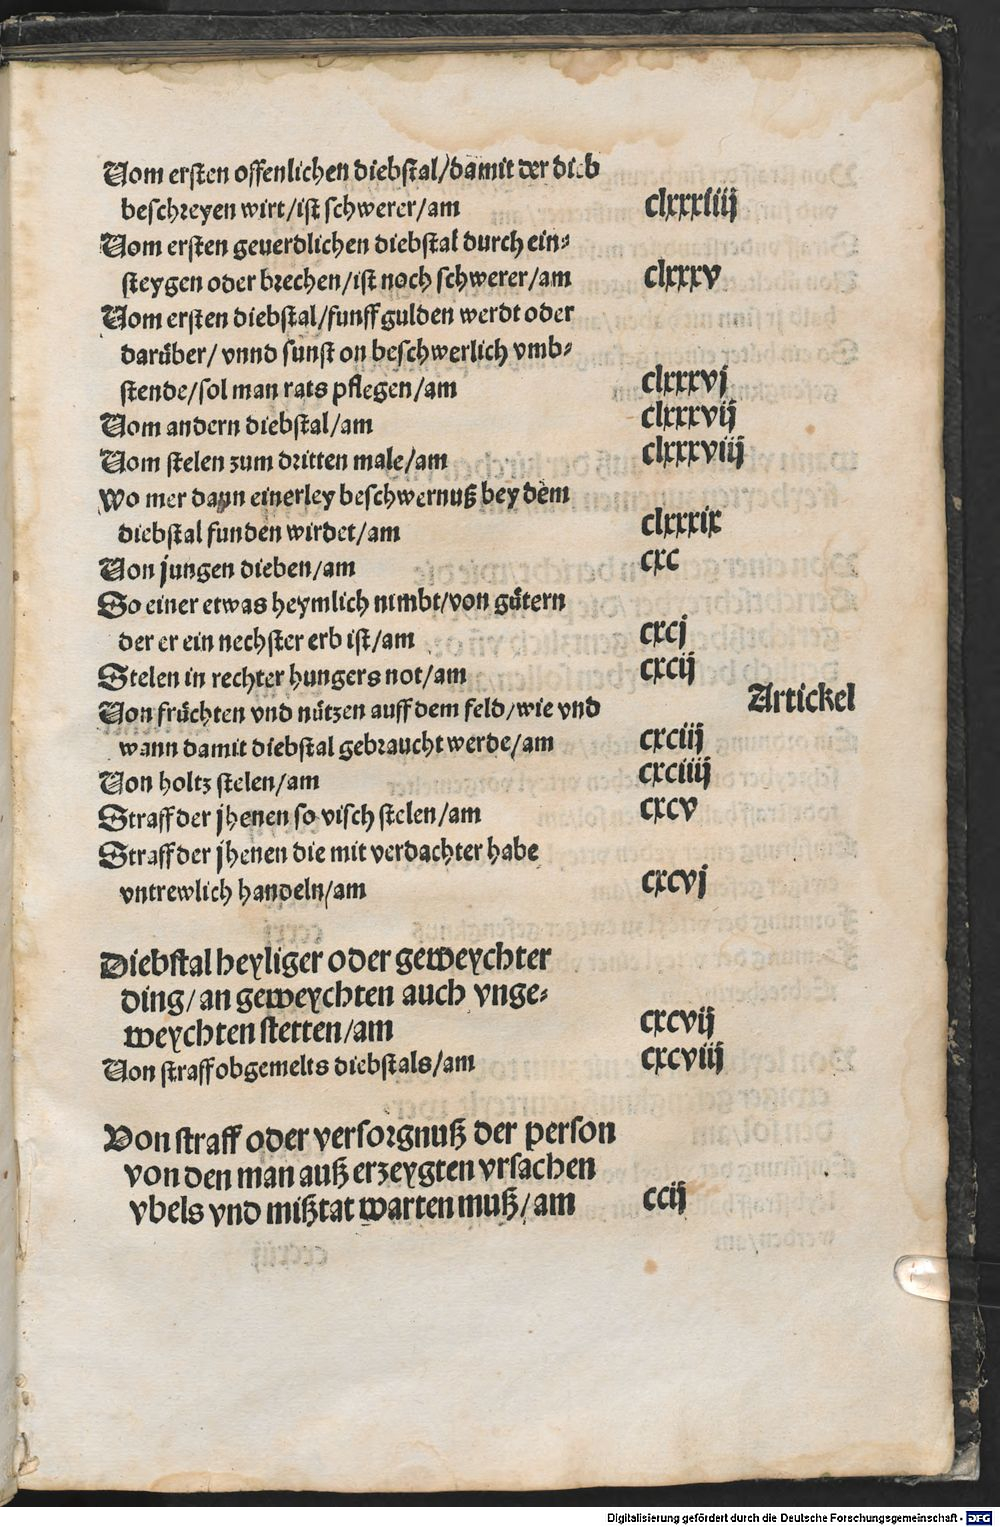 Vom ersten offenlichen diebstal/damit der dieb
beschreyen wirt/ist schwerer/am clxxxiiij
Vom ersten geuerdlichen diebstal durch ein⸗
steygen oder brechen/ist noch schwerer/am clxxxv
Vom ersten diebstal/funff gulden werdt oder
darüber/ vnnd sunst on beschwerlich vmb⸗
stende/sol man rats pflegen/am clxxxvj
Vom andern diebstal/am clxxxvij
Vom stelen zum dritten male/am clxxxviij
Wo mer dann einerley beschwernuß bey dem
diebstal funden wirdet/am clxxxix
Von jungen dieben/am cxc
So einer etwas heymlich nimbt/von gütern
der er ein nechster erb ist/am cxcj
Stelen in rechter hungers not/am cxcij
Artickel
Von früchten vnd nützen auff dem feld/wie vnd
wann damit diebstal gebraucht werde/am cxciij
Von holtz stelen/am cxciiij
Straff der jhenen so visch stelen/am cxcv
Straff der jhenen die mit verdachter habe
vntrewlich handeln/am cxcvj
Diebstal heyliger oder geweychter
ding/an geweychten auch vnge⸗
weychten stetten/am cxcvij
Von straff obgemelts diebstals/am cxcviij
Von straff oder versorgnuß der person
von den man auß erzeygten vrsachen
vbels vnd mißtat warten muß/am ccij
Digitalisierung gefördert durch die Deutsche Forschungsgemeinschaft - DFG